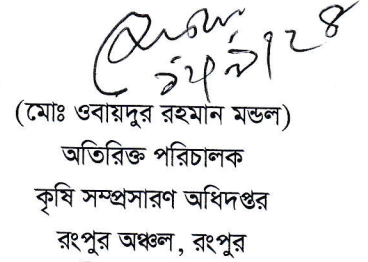 (মোঃ ওবায়দুর রহমান মন্ডল)
অতিরিক্ত পরিচালক
কৃষি সম্প্রসারণ অধিদপ্তর
রংপুর অঞ্চল, রংপুর